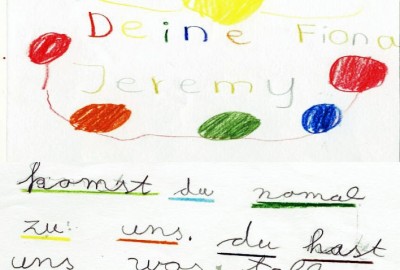 Deine Fiona
Jeremy
komst du nomal
zu uns. du hast
uns was